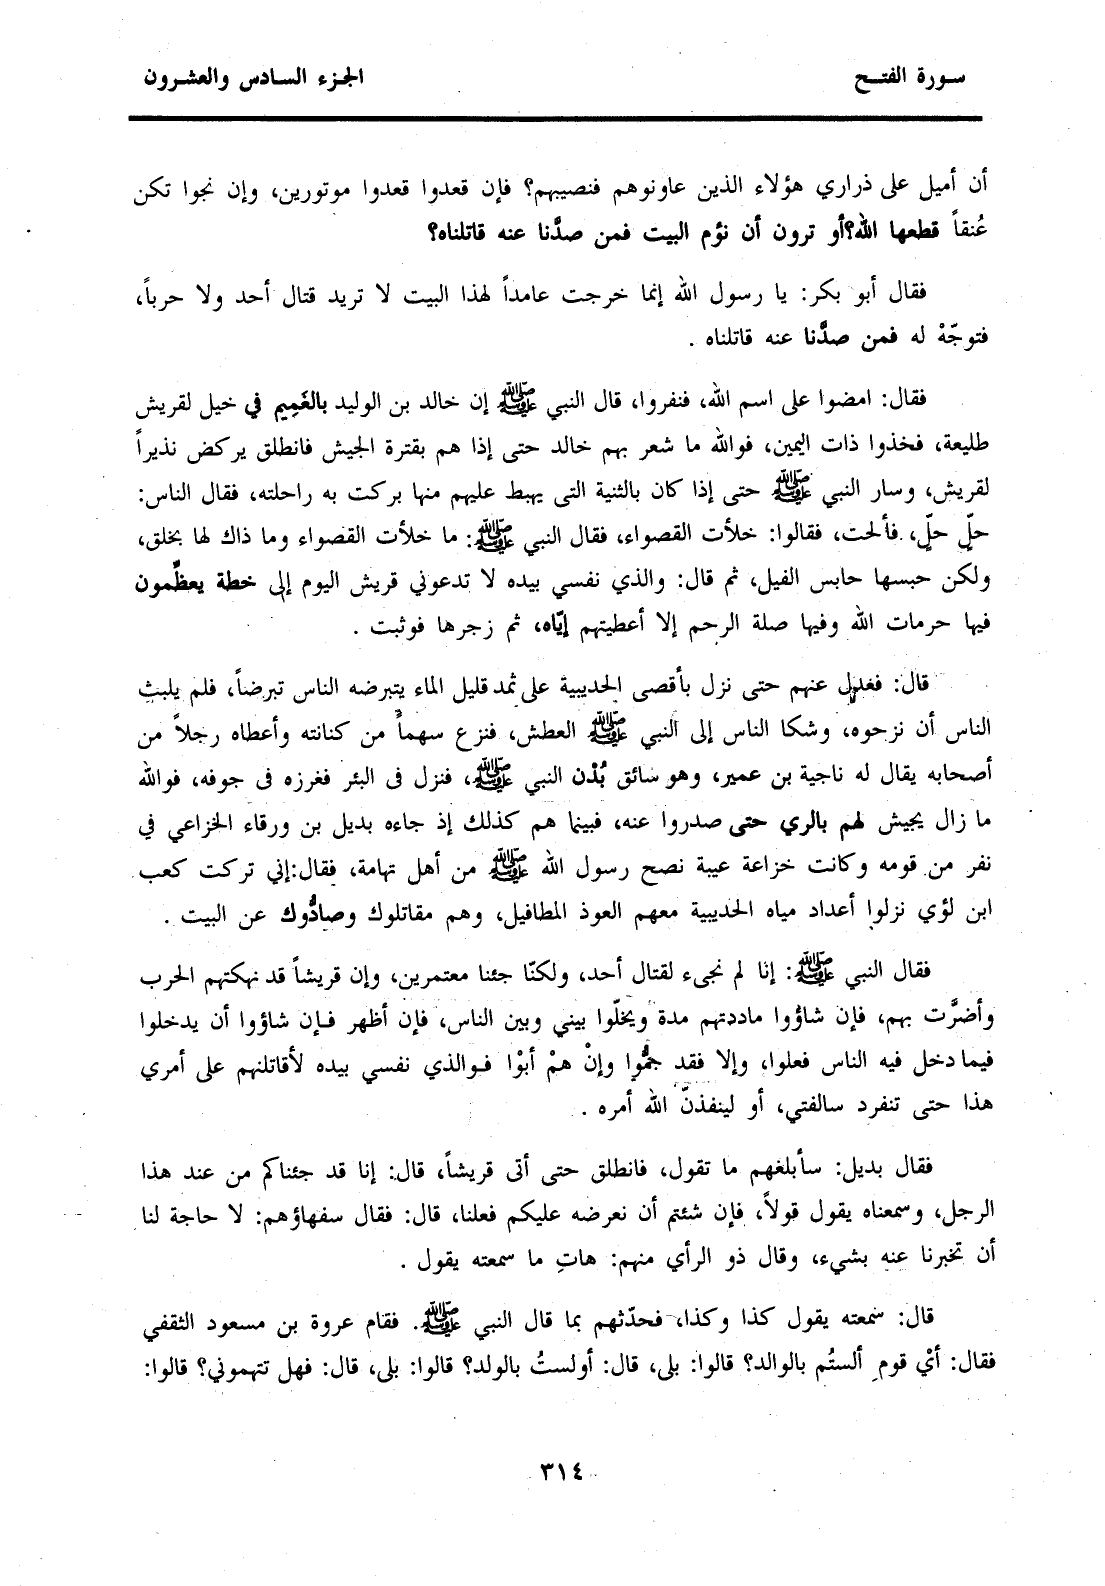 سورة الفتح
الجزء السادس والعشرون
أن أميل على ذراري هؤلاء الذين عاونوهم فنصيبهم؟ فإن قعدوا قعدوا موتورين، وإن نجوا تكن
عُنقاً قطعها الله؟أو ترون أن نؤم البيت فمن صدَّنا عنه قاتلناه؟
فقال أبو بكر: يا رسول الله إنما خرجت عامداً لهذا البيت لا تريد قتال أحد ولا حرباً،
فتوجّهْ له فمن صدَّنا عنه قاتلناه .
فقال: امضوا على اسم الله، فنفروا، قال النبي ﷺ إن خالد بن الوليد بالغَمِيم في خيل لقريش
طليعة، فخذوا ذات اليمين، فوالله ما شعر بهم خالد حتى إذا هم بقترة الجيش فانطلق يركض نذيراً
لقريش، وسار النبي ﷺ حتى إذا كان بالثنية التى يهبط عليهم منها بركت به راحلته، فقال الناس:
حلّ حلّ، فألحت، فقالوا: خلأت القصواء، فقال النبي ﷺ: ما خلأت القصواء وما ذاك لها بخلق،
ولكن حبسها حابس الفيل، ثم قال: والذي نفسي بيده لا تدعوني قريش اليوم إلى خطة يعظِّمون
فيها حرمات الله وفيها صلة الرحم إلا أعطيتهم إيّاه، ثم زجرها فوثبت .
قال: فعدل عنهم حتى نزل بأقصى الحديبية على ثمد قليل الماء يتبرضه الناس تبرضاً، فلم يلبث
الناس أن نزحوه، وشكا الناس إلى النبي ﷺ العطش، فنزع سهماً من كنانته وأعطاه رجلاً من
أصحابه يقال له ناجية بن عمير، وهو سائق بُدْن النبي ﷺ، فنزل فى البئر فغرزه فى جوفه، فوالله
ما زال يجيش لهم بالري حتى صدروا عنه، فبينما هم كذلك إذ جاءه بديل بن ورقاء الخزاعي في
نفر من قومه وكانت خزاعة عيبة نصح رسول الله ﷺ من أهل تهامة، فقال:إني تركت كعب
ابن لؤي نزلوا أعداد مياه الحديبية معهم العوذ المطافيل، وهم مقاتلوك وصادُّوك عن البيت .
فقال النبي ﷺ: إنا لم نجىء لقتال أحد، ولكنّا جئنا معتمرين، وإن قريشاً قد نهكتهم الحرب
وأضرَّت بهم، فإن شاؤوا ماددتهم مدة ويخلّوا بيني وبين الناس، فإن أظهر فإن شاؤوا أن يدخلوا
فيما دخل فيه الناس فعلوا، وإلا فقد جمُّوا وإنْ همْ أبوْا فوالذي نفسي بيده لأقاتلنهم على أمري
هذا حتى تنفرد سالفتي، أو لينفذنّ الله أمره .
فقال بديل: سأبلغهم ما تقول، فانطلق حتى أتى قريشاً، قال: إنا قد جئناكم من عند هذا
الرجل، وسمعناه يقول قولاً، فإن شئتم أن نعرضه عليكم فعلنا، قال: فقال سفهاؤهم: لا حاجة لنا
أن تخبرنا عنه بشيء، وقال ذو الرأي منهم: هاتِ ما سمعته يقول .
قال: سمعته يقول كذا وكذا، فحدّثهم بما قال النبي ﷺ. فقام عروة بن مسعود الثقفي
فقال: أيْ قوم ألستُم بالوالد؟ قالوا: بلى، قال: أولستُ بالولد؟ قالوا: بلى، قال: فهل تتهموني؟ قالوا:
٣١٤